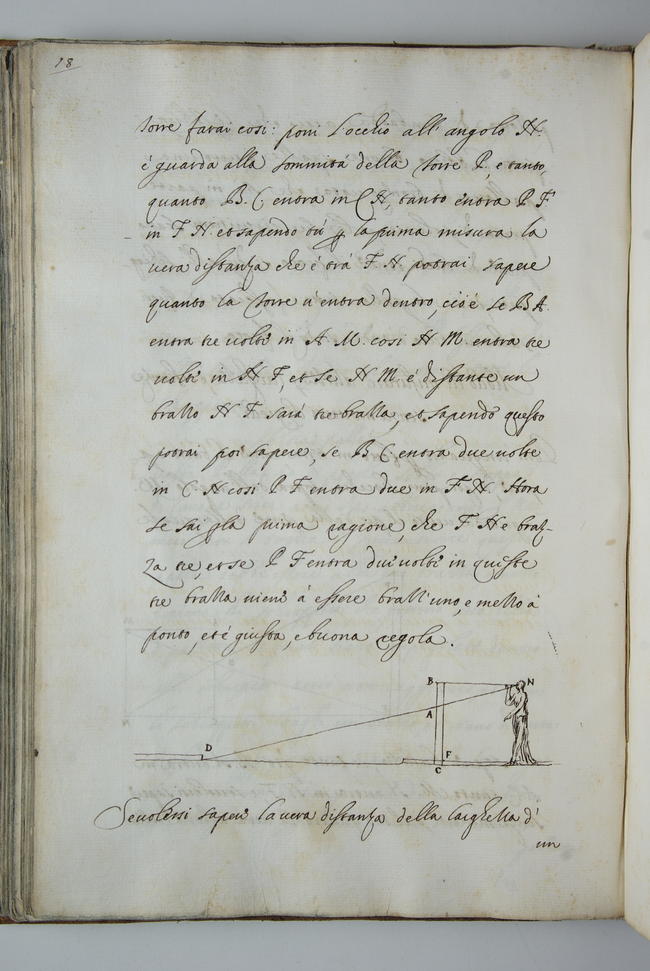 18
torre farai cosi: poni l'occhio all'angolo N.
é guarda alla sommitá della torre P., e tanto,
quanto B. C. entra in C N, tanto entra P F.
in F N. et sapendo tú la prima misura la
vera distanza che é trá F. N. potrai sapere
quanto la torre u'entra dentro, cióé se B A.
entra tre uolti in A M. cosi N M. entra tre
uolti in N F, et se N M. é distante un
brallo N F. sará tre bralla, et sapendo questo
potrai poi sapere, se B C. entra due uolte
in C. N cosi P F entra due in F N. Hora
se sai la prima ragione, che F N e braz-
za tre, et se P F entra dui uolti in queste
tre bralla uieni á essere brall'uno, e mello á
ponto, et é giusta, e buona regola.
B N
A
D
F
C
Seuolessi saperi la uera distanza della larghella d'
un